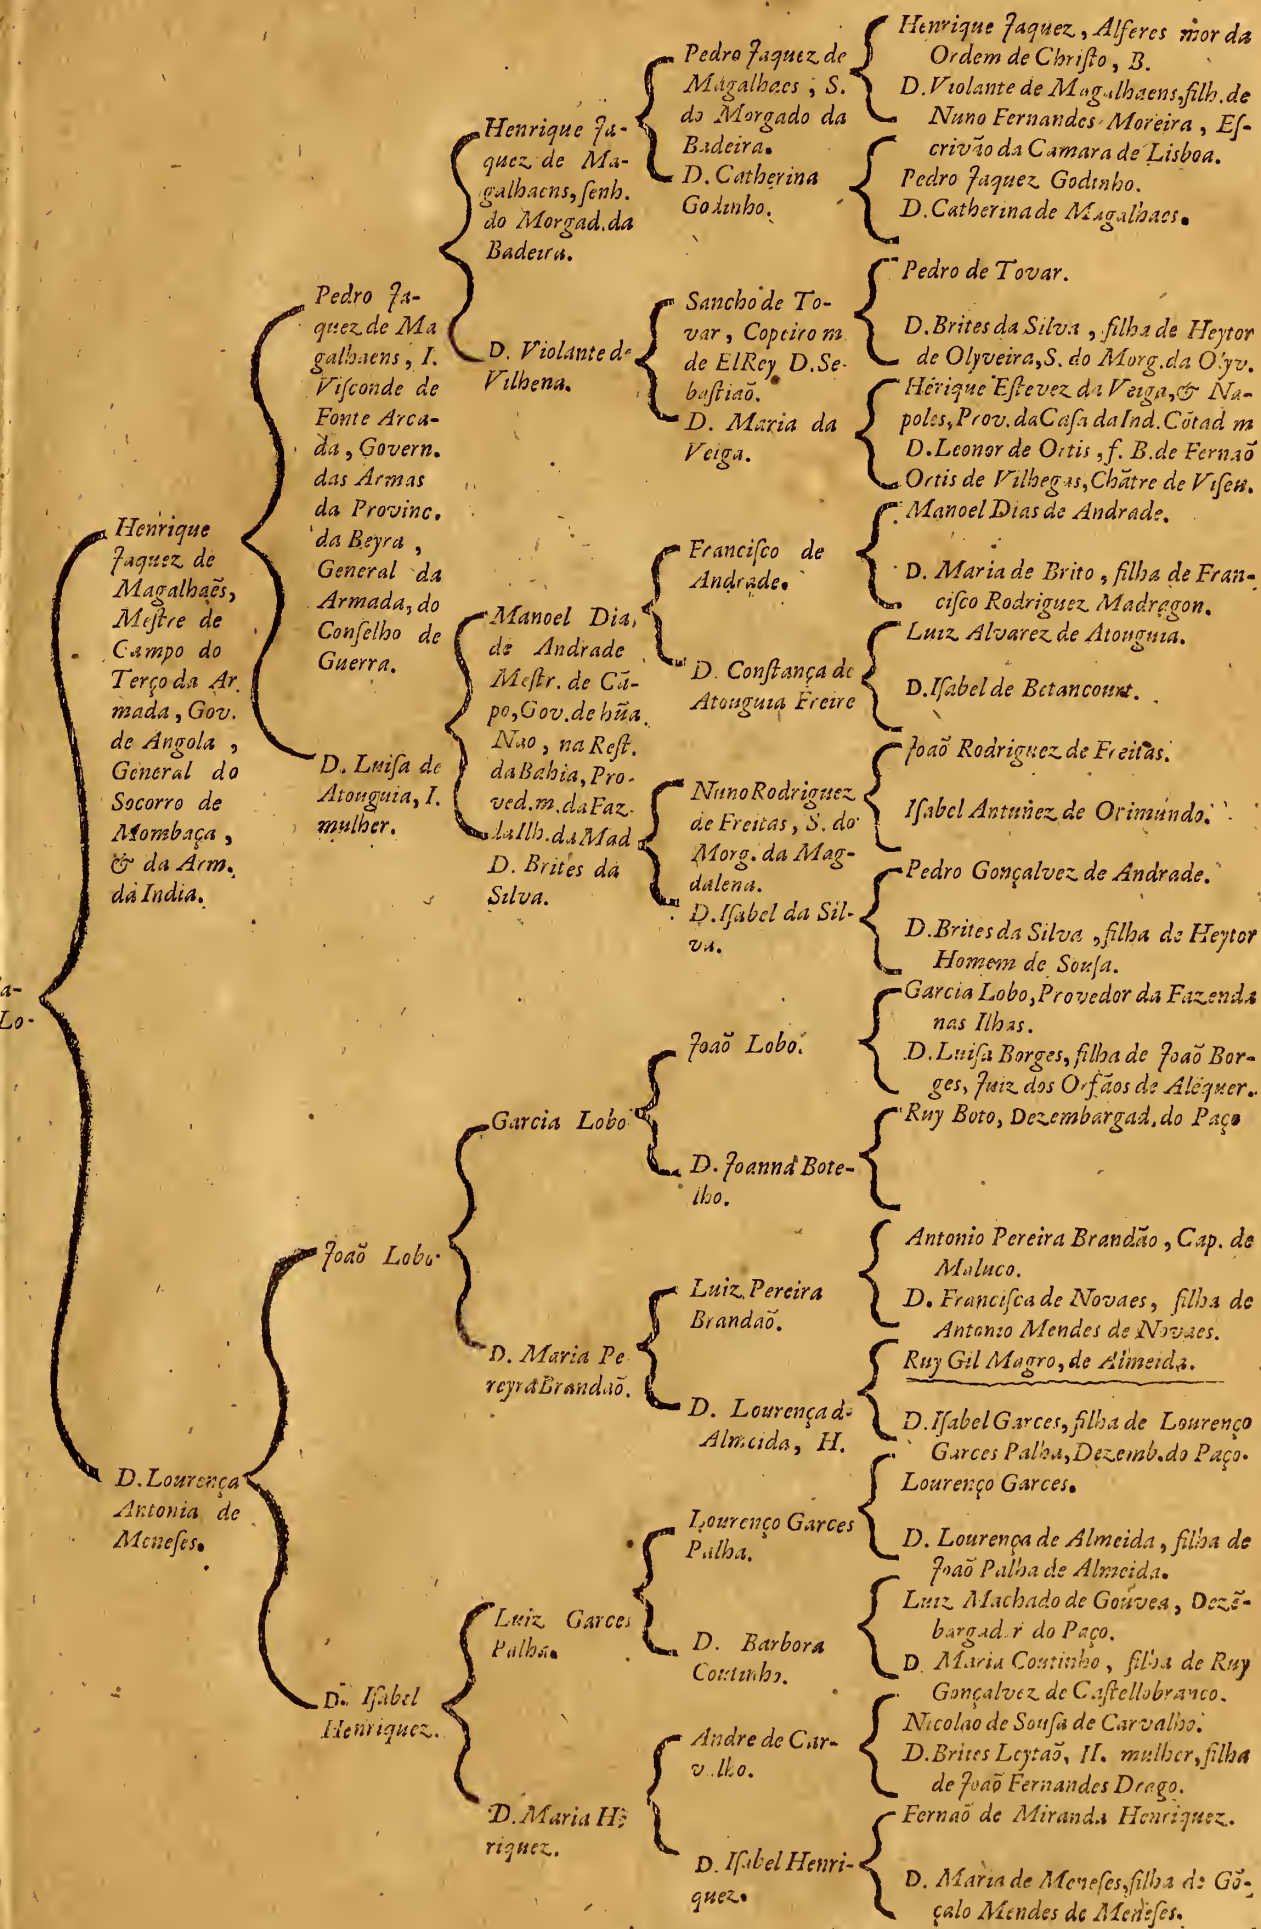 a-
Lo-
Henrique
Jaquez de
Magalhaẽs,
Meſtre de
Campo do
Terço da Ar.
mada, Gov.
de Angola,
General do
Socorro de
Mombaça,
& da Arm.
da India.
D. Lourença
Antonia de
Meneſes.
Pedro Ja-
quez de Ma
galhaens, I.
Viſconde de
Fonte Arca-
da, Govern.
das Armas
da Provinc.
da Beyra,
General da
Armada, do
Conſelho de
Guerra.
D. Luiſa de
Atouguia, I.
mulher.
Joaõ Lobo.
D. Iſabel
Henriquez.
Henrique Ja-
quez de Ma-
galhaens, ſenh.
do Morgad. da
Badeira.
D. Violante de
Vilhena.
Manoel Dia,
de Andrade
Meſtr. de Cã-
po, Gov. de hũa
Nao, na Reſt.
da Bahia, Pro-
ved. m. da Faz.
da Ilh. da Mad
D. Brites da
Silva.
Garcia Lobo
D. Maria Pe
reyra Brandaõ.
Luiz Garces
Palha.
D. Maria Hẽ
riquez.
Pedro Jaquez de
Magalhaes, S.
do Morgado da
Badeira.
D. Catherina
Godinho.
Sancho de To-
var, Copeiro m.
de ElRey D. Se-
baſtiaõ.
D. Maria da
Veiga.
Franciſco de
Andrade.
D. Conſtança de
Atouguia Freire
Nuno Rodriguez
de Freitas, S. do
Morg. da Mag-
dalena.
D. Iſabel da Sil-
va.
Joaõ Lobo.
D. Joanna Bote-
lho.
Luiz Pereira
Brandaõ.
D. Lourença de
Almeida, H.
Lourenço Garces
Palha.
D. Barbora
Coutinho.
Andre de Car-
valho.
D. Iſabel Henri-
quez.
Henrique Jaquez, Alferes mor da
Ordem de Chriſto, B.
D. Violante de Magalhaens, filh. de
Nuno Fernandes Moreira, Eſ-
crivão da Camara de Lisboa.
Pedro Jaquez Godinho.
D. Catherina de Magalhaes.
Pedro de Tovar.
D. Brites da Silva, filha de Heytor
de Olyveira, S. do Morg. da Olyv.
Hẽrique Eſtevez da Veiga, & Na-
poles, Prov. da Caſa da Ind. Cõtad m
D. Leonor de Ortis, f. B. de Fernaõ
Ortis de Vilhegas, Chãtre de Viſeu.
Manoel Dias de Andrade.
D. Maria de Brito, filha de Fran-
ciſco Rodriguez Madragon.
Luiz Alvarez de Atouguia.
D. Iſabel de Betancourt.
Joaõ Rodriguez de Freitas.
Iſabel Antuñez de Orimundo.
Pedro Gonçalvez de Andrade.
D. Brites da Silva, filha de Heytor
Homem de Souſa.
Garcia Lobo, Provedor da Fazenda
nas Ilhas.
D. Luiſa Borges, filha de Joaõ Bor-
ges, Juiz dos Orfãos de Alẽquer.
Ruy Boto, Dezembargad. do Paço
Antonio Pereira Brandão, Cap. de
Maluco.
D. Franciſca de Novaes, filha de
Antonio Mendes de Novaes.
Ruy Gil Magro, de Almeida.
D. Iſabel Garces, filha de Lourenço
Garces Palha, Dezemb. do Paço.
Lourenço Garces.
D. Lourença de Almeida, filha de
Joaõ Palha de Almeida.
Luiz Machado de Gouvea, Dezẽ-
bargador do Paço.
D. Maria Coutinho, filha de Ruy
Gonçalvez de Caſtellobranco.
Nicolao de Souſa de Carvalho.
D. Brites Leytaõ, II. mulher, filha
de Joaõ Fernandes Drago.
Fernaõ de Miranda Henriquez.
D. Maria de Meneſes, filha de Gõ-
çalo Mendes de Meneſes.